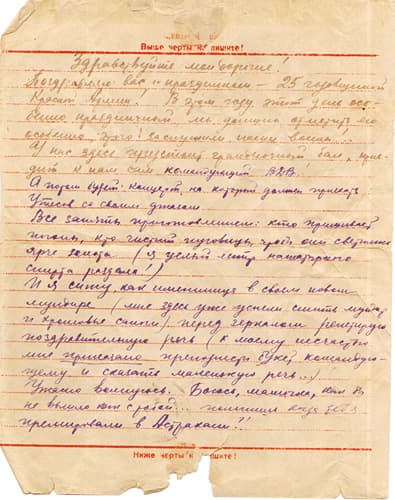 Выше черты не пишите!
Здравствуйте мои дорогие!
Поздравляю вас с праздником – 25 годовщиной
Красной Армии. В этом году этот день осо-
бенно праздничный. Мы должны отметить его
особенно, этого заслужили наши воины!..
А у нас здесь предстоит грандиозный бал, прие-
дет к нам сам командующий ВДВ.
А потом будет концерт, на который должен приехать
Утесов со своим джазом
Все заняты приготовлением: кто пришивает
погоны, кто чистит пуговицы, чтоб они светились
ярче золота. (я целый литр нашатырного
спирта раздала!)
И я сижу, как именинница в своем новом
мундире (мне здесь уже успели сшить мундир
и хромовые сапоги) перед зеркалом репетирую
поздравительную речь (к моему несчастью
мне приказано преподнести букет командую-
щему и сказать маленькую речь...)
Ужасно волнуюсь. Боюсь, мамочка, как б
не вышло как с рябой... помнишь когда тебя
премировали в Астрахани?!
Ниже черты не пишите!